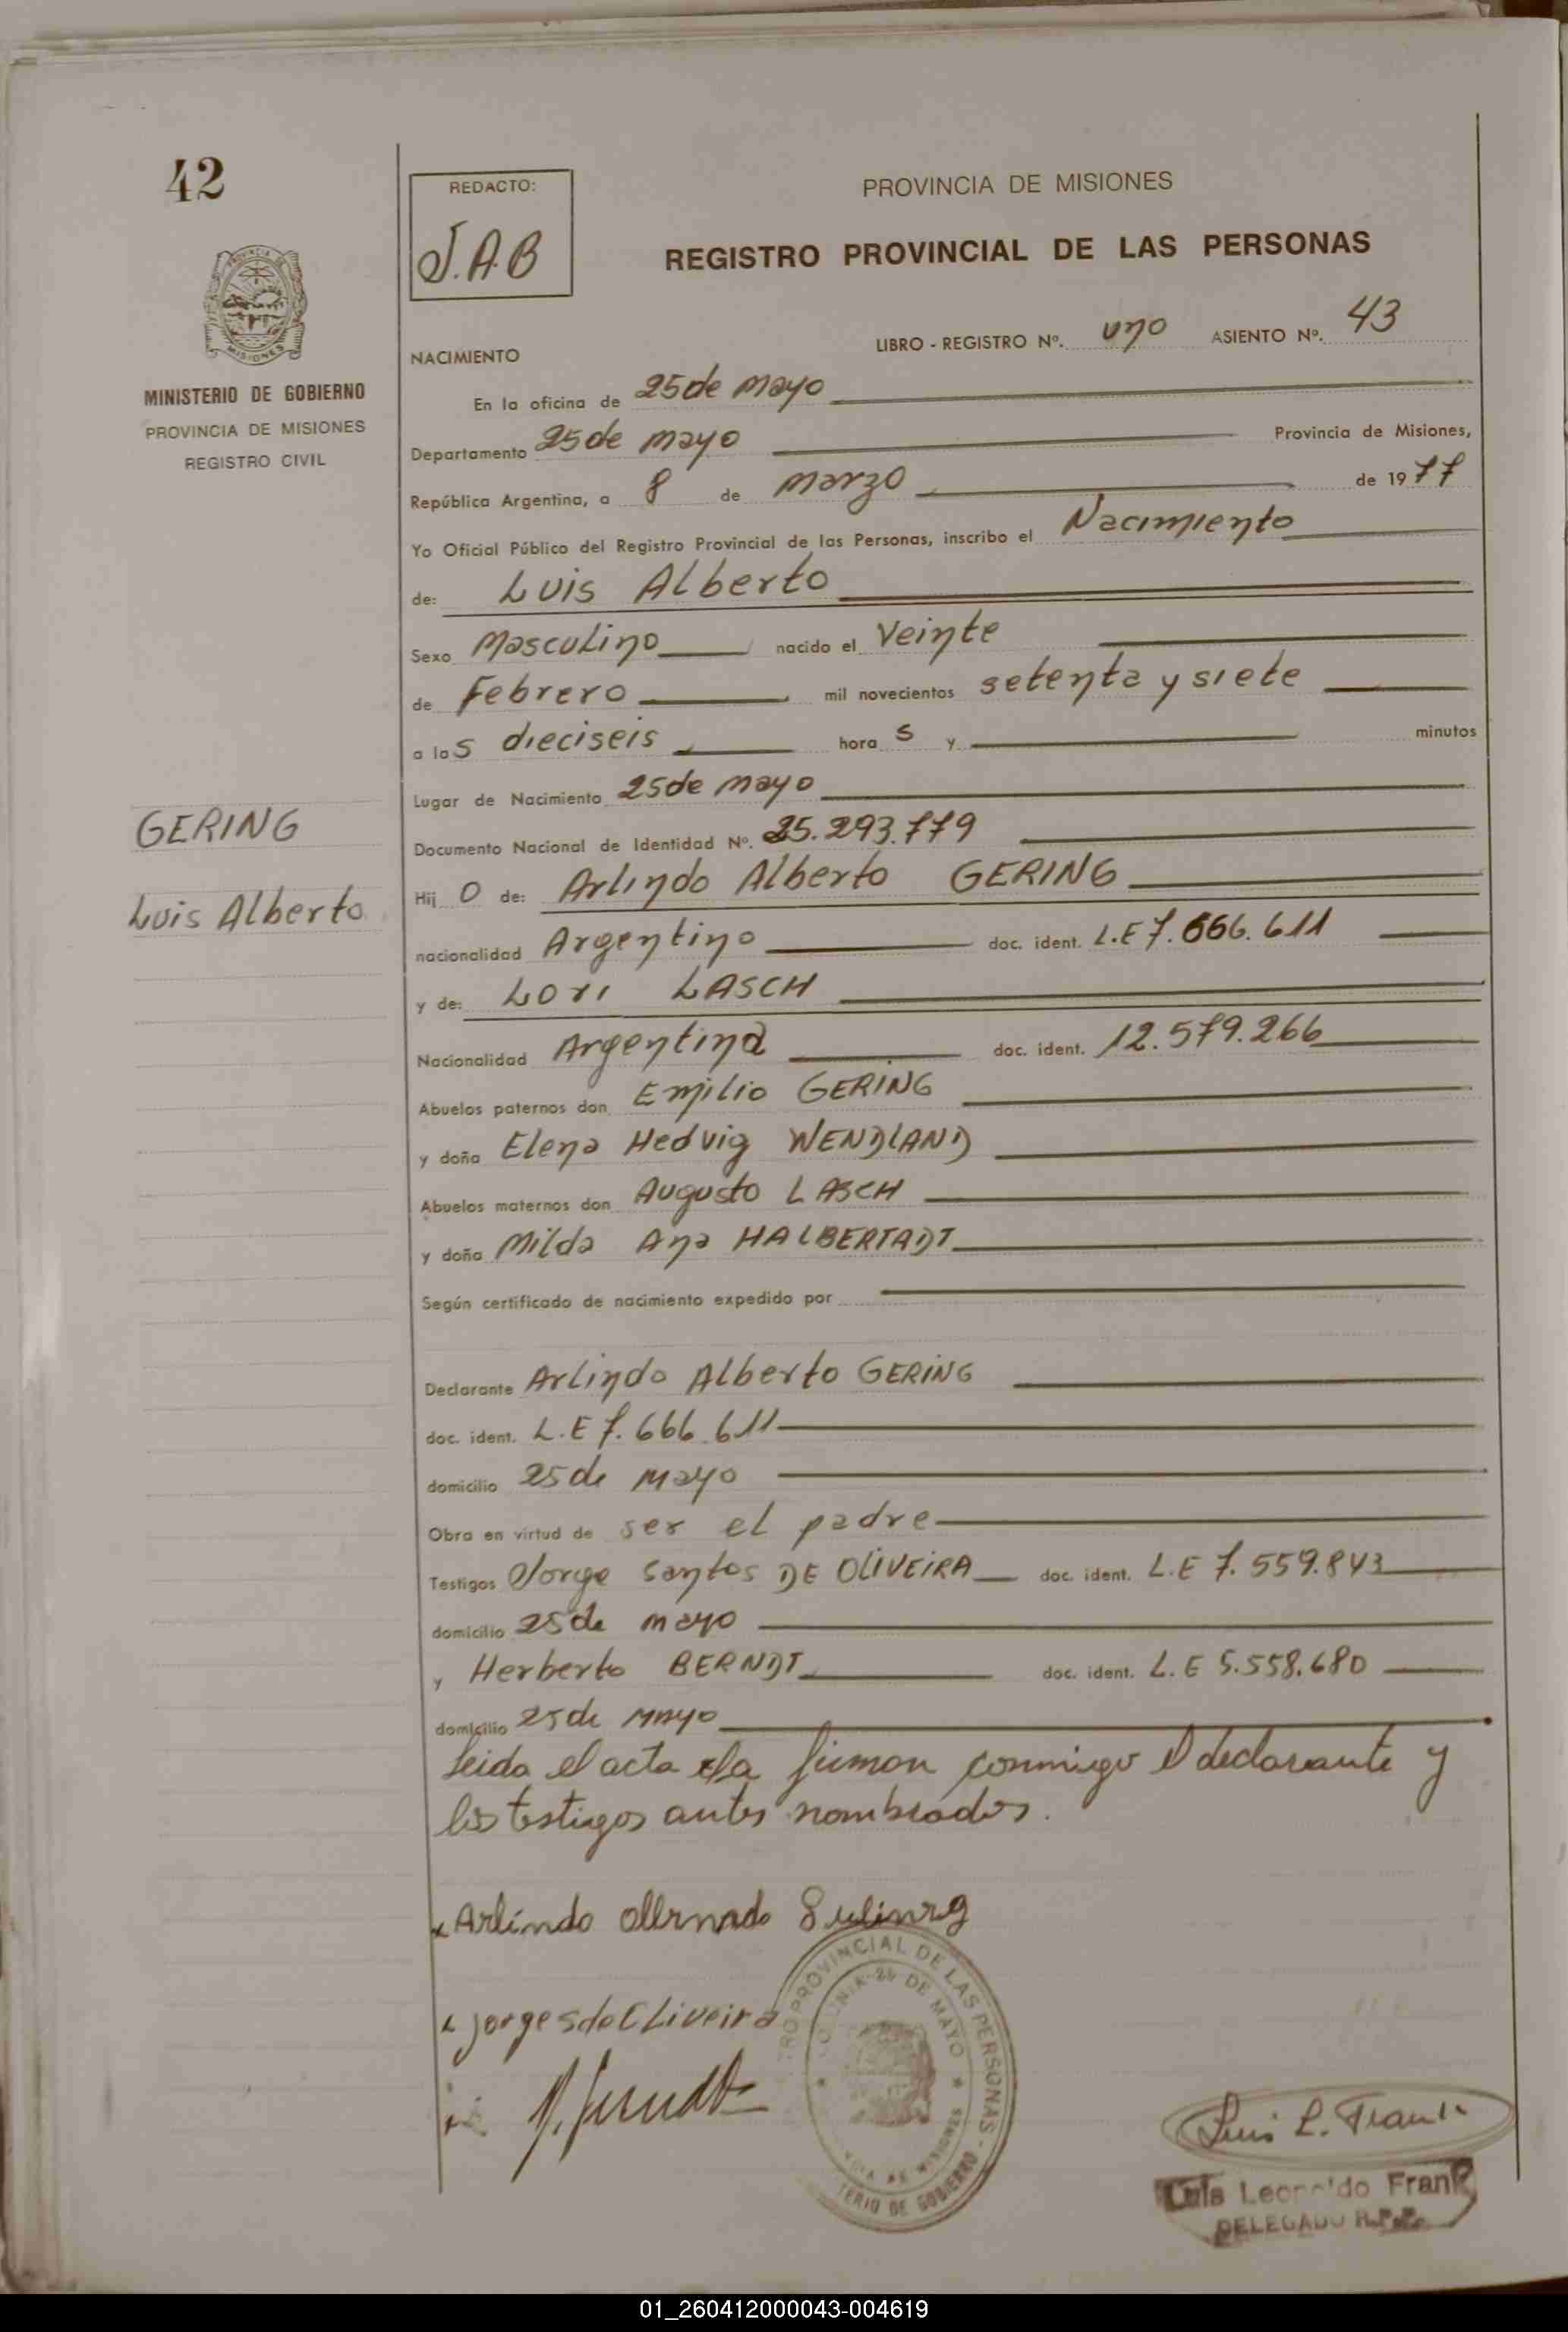 42
REDACTO:
J.A.B
PROVINCIA DE MISIONES
REGISTRO PROVINCIAL DE LAS PERSONAS
MISIONES
MINISTERIO DE GOBIERNO
PROVINCIA DE MISIONES
REGISTRO CIVIL
LIBRO - REGISTRO Nº. uno ASIENTO Nº. 43
NACIMIENTO
En la oficina de 25 de mayo
Departamento 25 de mayo Provincia de Misiones,
República Argentina, a 8 de marzo de 1977
Yo Oficial Público del Registro Provincial de las Personas, inscribo el Nacimiento
de: Luis Alberto
Sexo Masculino nacido el Veinte
de Febrero mil novecientos setenta y siete
a las dieciseis hora s y minutos
Lugar de Nacimiento 25 de mayo
Documento Nacional de Identidad Nº. 25.293.779
GERING
Luis Alberto
Hij o de: Arlindo Alberto GERING
nacionalidad Argentino doc. ident. L.E 7.666.611
y de: Lori LASCH
Nacionalidad Argentina doc. ident. 12.579.266
Abuelos paternos don Emilio GERING
y doña Elena Hedvig WENDLAND
Abuelos maternos don Augusto LASCH
y doña Milda Ana HALBERTADT
Según certificado de nacimiento expedido por
Declarante Arlindo Alberto GERING
doc. ident. L.E 7.666.611
domicilio 25 de mayo
Obra en virtud de ser el padre
Testigos Jorge Santos DE OLIVEIRA doc. ident. L.E 7.559.843
domicilio 25 de mayo
y Herberto BERNDT doc. ident. L.E 5.558.680
domicilio 25 de mayo
Leida el acta la firman conmigo el declarante y
los testigos antes nombrados.
Arlindo
PROVINCIAL DE LAS PERSONAS -
DE MAYO
DE MISIONES
DE GOBIERNO
Luis L. Frank
Luis Leopoldo Frank
DELEGADO R.P.P.
01_260412000043-004619